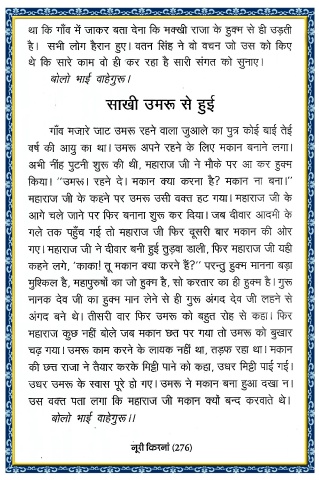 था कि गाँव में जाकर बता देना कि मक्खी राजा के हुक्म से ही उड़ती
है। सभी लोग हैरान हुए। वतन सिंह ने वो वचन जो उस को किए
थे कि सारे काम वो ही कर रहा है सारी संगत को सुनाए।
बोलो भाई वाहेगुरू।
साखी उमरू से हुई
गाँव मजारे जाट उमरू रहने वाला जुआले का पुत्र कोई बाई तेई
वर्ष की आयु का था। उमरू अपने रहने के लिए मकान बनाने लगा।
अभी नींह पुटनी शुरू की थी, महाराज जी ने मौके पर आ कर हुक्म
किया। "उमरू। रहने दे। मकान क्या करना है? मकान ना बना।"
महाराज जी के कहने पर उमरू उसी वक्त हट गया। महाराज जी के
आगे चले जाने पर फिर बनाना शुरू कर दिया। जब दीवार आदमी के
गले तक पहुँच गई तो महाराज जी फिर दूसरी बार मकान की ओर
गए। महाराज जी ने दीवार बनी हुई तुड़वा डाली, फिर महाराज जी यही
कहने लगे, 'काका! तू मकान क्या करने हैं?" परन्तु हुक्म मानना बड़ा
मुश्किल है, महापुरुषों का जो हुक्म है, सो करतार का ही हुक्म है। गुरू
नानक देव जी का हुक्म मान लेने से ही गुरू अंगद देव जी लहने से
अंगद बने थे। तीसरी वार फिर उमरू को बहुत रोह से कहा। फिर
महाराज कुछ नहीं बोले जब मकान छत पर गया तो उमरू को बुखार
चढ़ गया। उमरू काम करने के लायक नहीं था, तड़फ रहा था। मकान
की छत्त राजा ने तैयार करके मिट्टी पाने को कहा, उधर मिट्टी पाई गई।
उधर उमरू के स्वास पूरे हो गए। उमरू ने मकान बना हुआ दखा न।
उस वक्त पता लगा कि महाराज जी मकान क्यों बन्द करवाते थे।
बोलो भाई वाहेगुरू।।
नूरी किरनां (276)